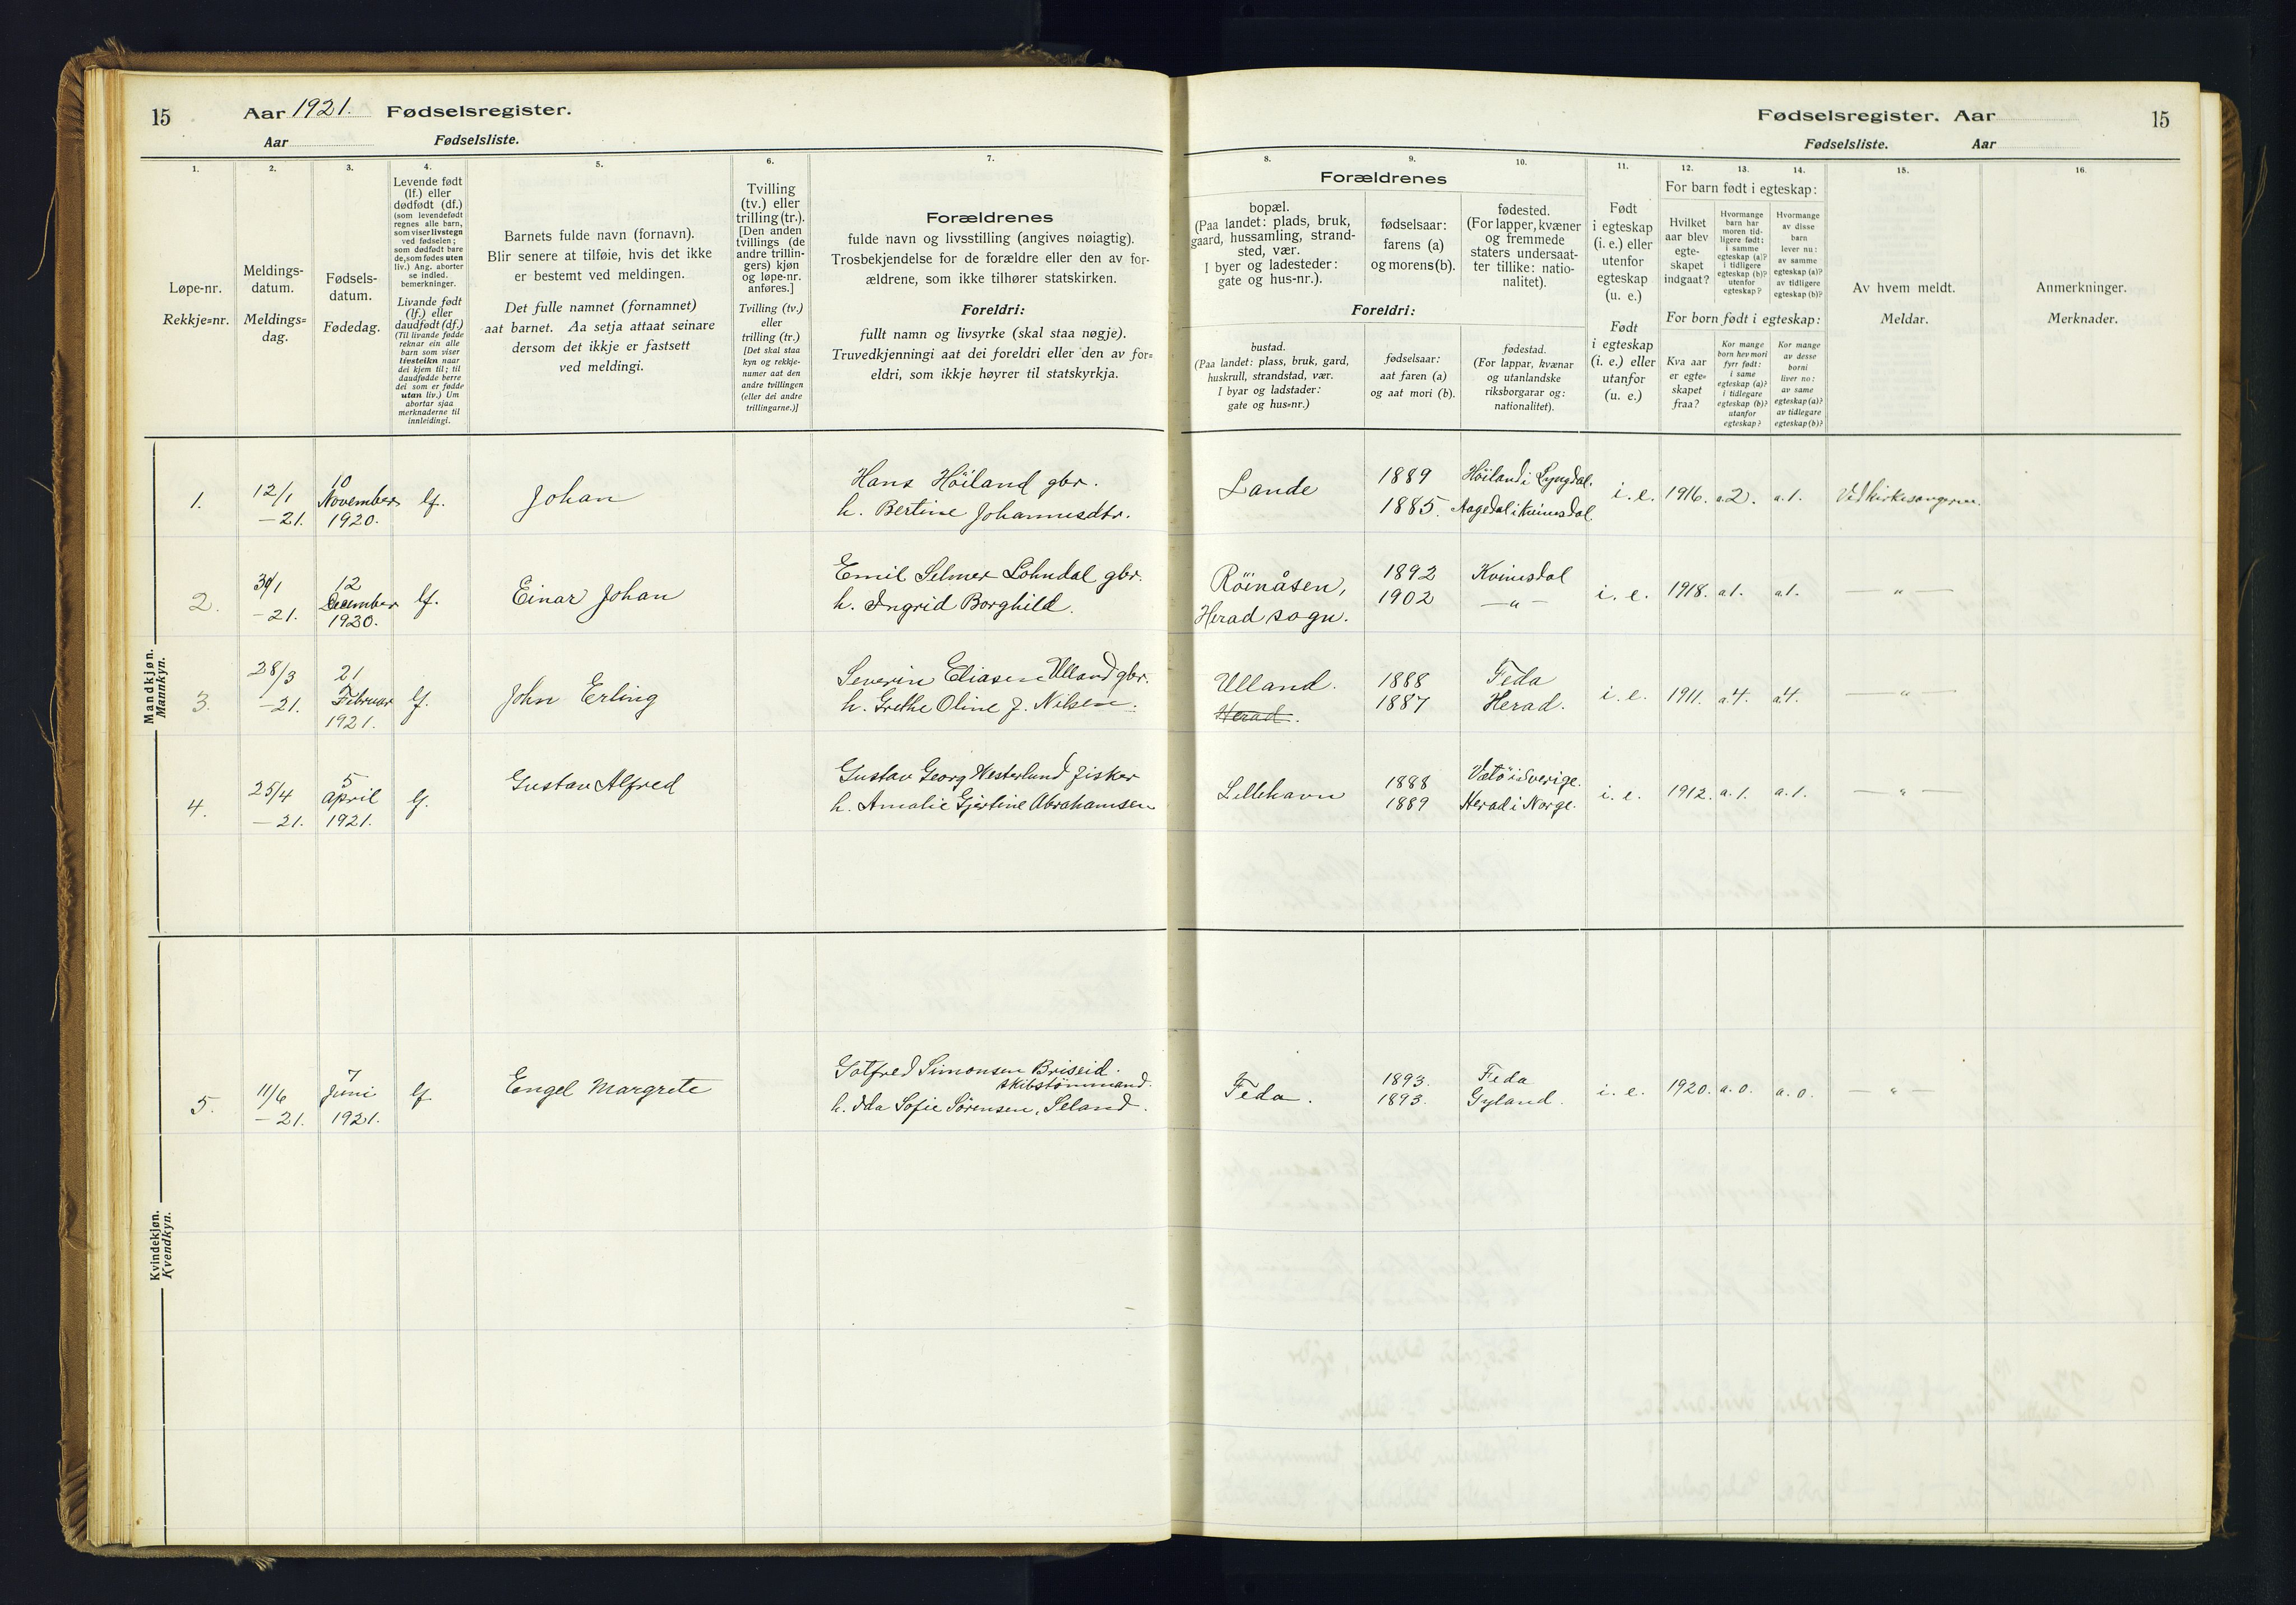 15
Aar 1921. Fødselsregister.
Aar Fødselsliste.
Fødselsregister. Aar
15
Fødselsliste. Aar
1.
Løpe-nr.
Rekkje=nr.
2.
Meldings-
datum.
Meldings=
dag.
3.
Fødsels-
datum.
Fødedag.
4.
Levende født
(lf.) eller
dødfødt (df.)
(som levendefødt
regnes alle barn,
som viser livstegn
ved fødselen;
som dødfødt bare
de, som fødes uten
liv.) Ang. aborter
se indled.
bemerkninger.
Livande født
(lf.) eller
daudfødt (df.)
(Til livande fødde
reknar ein alle
barn som viser
livsteikn naar
dei kjem til; til
daudfødde berre
dei som er fødde
utan liv.) Um
abortar sjaa
merknaderne til
innleidingi.
5.
Barnets fulde navn (fornavn).
Blir senere at tilføie, hvis det ikke
er bestemt ved meldingen.
Det fulle namnet (fornamnet)
aat barnet. Aa setja attaat seinare
dersom det ikkje er fastsett
ved meldingi.
6.
Tvilling
(tv.) eller
trilling (tr.).
[Den anden
tvillings (de
andre trillin-
gers) kjøn
og løpe-nr.
anføres.]
Tvilling (tv.)
eller
trilling (tr.)
[Det skal staa
kyn og rekkje-
numer aat den
andre tvillingen
(eller dei andre
trillingarne.)]
7.
Forældrenes
fulde navn og livsstilling (angives nøiagtig).
Trosbekjendelse for de forældre eller den av for-
ældrene, som ikke tilhører statskirken.
Foreldri:
fullt namn og livsyrke (skal staa nøgje).
Truvedkjenningi aat dei foreldri eller den av for=
eldri, som ikkje høyrer til statskyrkja.
8.
Forældrenes
bopæl.
(Paa landet: plads, bruk,
gaard, hussamling, strand-
sted, vær.
I byer og ladesteder:
gate og hus-nr.).
Foreldri:
bustad.
(Paa landet: plass, bruk, gard,
huskrull, strandstad, vær.
I byar og ladstader:
gate og hus=nr.)
9.
fødselsaar:
farens (a)
og morens (b).
fødselsaar:
aat faren (a)
og aat mori (b).
10.
fødested.
(For lapper, kvæner
og fremmede
staters undersaat-
ter tillike: natio-
nalitet).
fødestad.
(For lappar, kvænar
og utanlandske
riksborgarar og:
nationalitet).
11.
Født
i egteskap
(i. e.) eller
utenfor
egteskap
(u. e.)
Født
i egteskap
(i. e.) eller
utanfor
(u. e.)
12. 13. 14.
For barn født i egteskap:
Hvilket
aar blev
egte-
skapet
indgaat?
Hvormange
barn har
moren tid-
ligere født:
i samme
egteskap (a)?
i tidligere
egteskap (b)?
utenfor
egteskap?
Hvormange
av disse
barn
lever nu:
av samme
egteskap (a)?
av tidligere
egteskap (b)?
For born født i egteskap:
Kva aar
er egte=
skapet
fraa?
Kor mange
born hev mori
fyrr født:
i same
egteskap (a)?
i tidlegare
egteskap (b)?
utanfor
egteskap?
Kor mange
av desse
borni
liver no:
av same
egteskap (a)?
av tidlegare
egteskap (b)?
15.
Av hvem meldt.
Meldar.
16.
Anmerkninger.
Merknader.
Mandkjøn.
Mannkyn.
1. 12/1 -21. 10 November 1920. lf. Johan
Hans Höiland gbr.
h. Bertine Johannesdtr.
Lande 1889 Höiland i Lyngdal.
1885. Aagedal i Kvinesdal.
i. e. 1916. a.2. a.1. Ved kirkesangeren.
2. -21. 12 December 1920. lf. Einar Johan
Emil Selmer Lohndal gbr.
h. Ingrid Borghild.
Röinåsen, 1892 Kvinesdal
Herad sogn. 1902 —„—
i. e. 1918. a1. a.1. —„—
3. 28/3 -21. 21 Februar 1921. lf. John Erling
Severin Eliasen Ulland gbr.
h. Grethe Oline J. Nilsen.
Ulland. 1888 Feda
Herad. 1887 Herad.
i. e. 1911. a4. a4. —„—
4. 25/4 -21. 5 April 1921. lf. Gustav Alfred
Gustav Georg Westerlund fisker
h. Amalie Gjertine Abrahamsen
Lillehavn 1888 Vätö i Sverige.
1889 Herad i Norge.
i. e. 1912. a.1. a.1. —„—
Kvindekjøn.
Kvendkyn.
5. 11/6 -21. 7 Juni 1921. lf. Engel Margrete
Gotfred Simonsen Briseid.
skibstömmermand.
h. Ida Sofie Sörensen, Seland.
Feda. 1893. Feda
1893. Gyland.
i. e. 1920. a.0. a.0. —„—